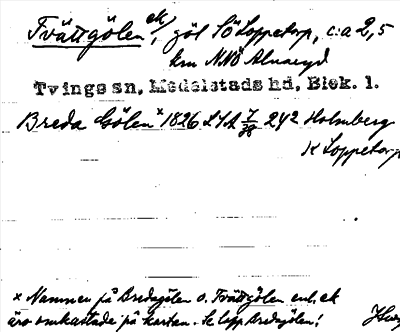 Tvättgölen ek/, göl SÖ Loppetorp, c:a 2,5
km NNÖ Alnaryd
Tvings sn, Medelstads hd, Blek. l.
Breda Gölen x 1826 LSA 7/28 242 Holmberg
K Loppetorp
x Namnen på Bredagölen o. Tvättgölen enl. ek
äro omkastade på kartan. Se lapp Bredagölen!